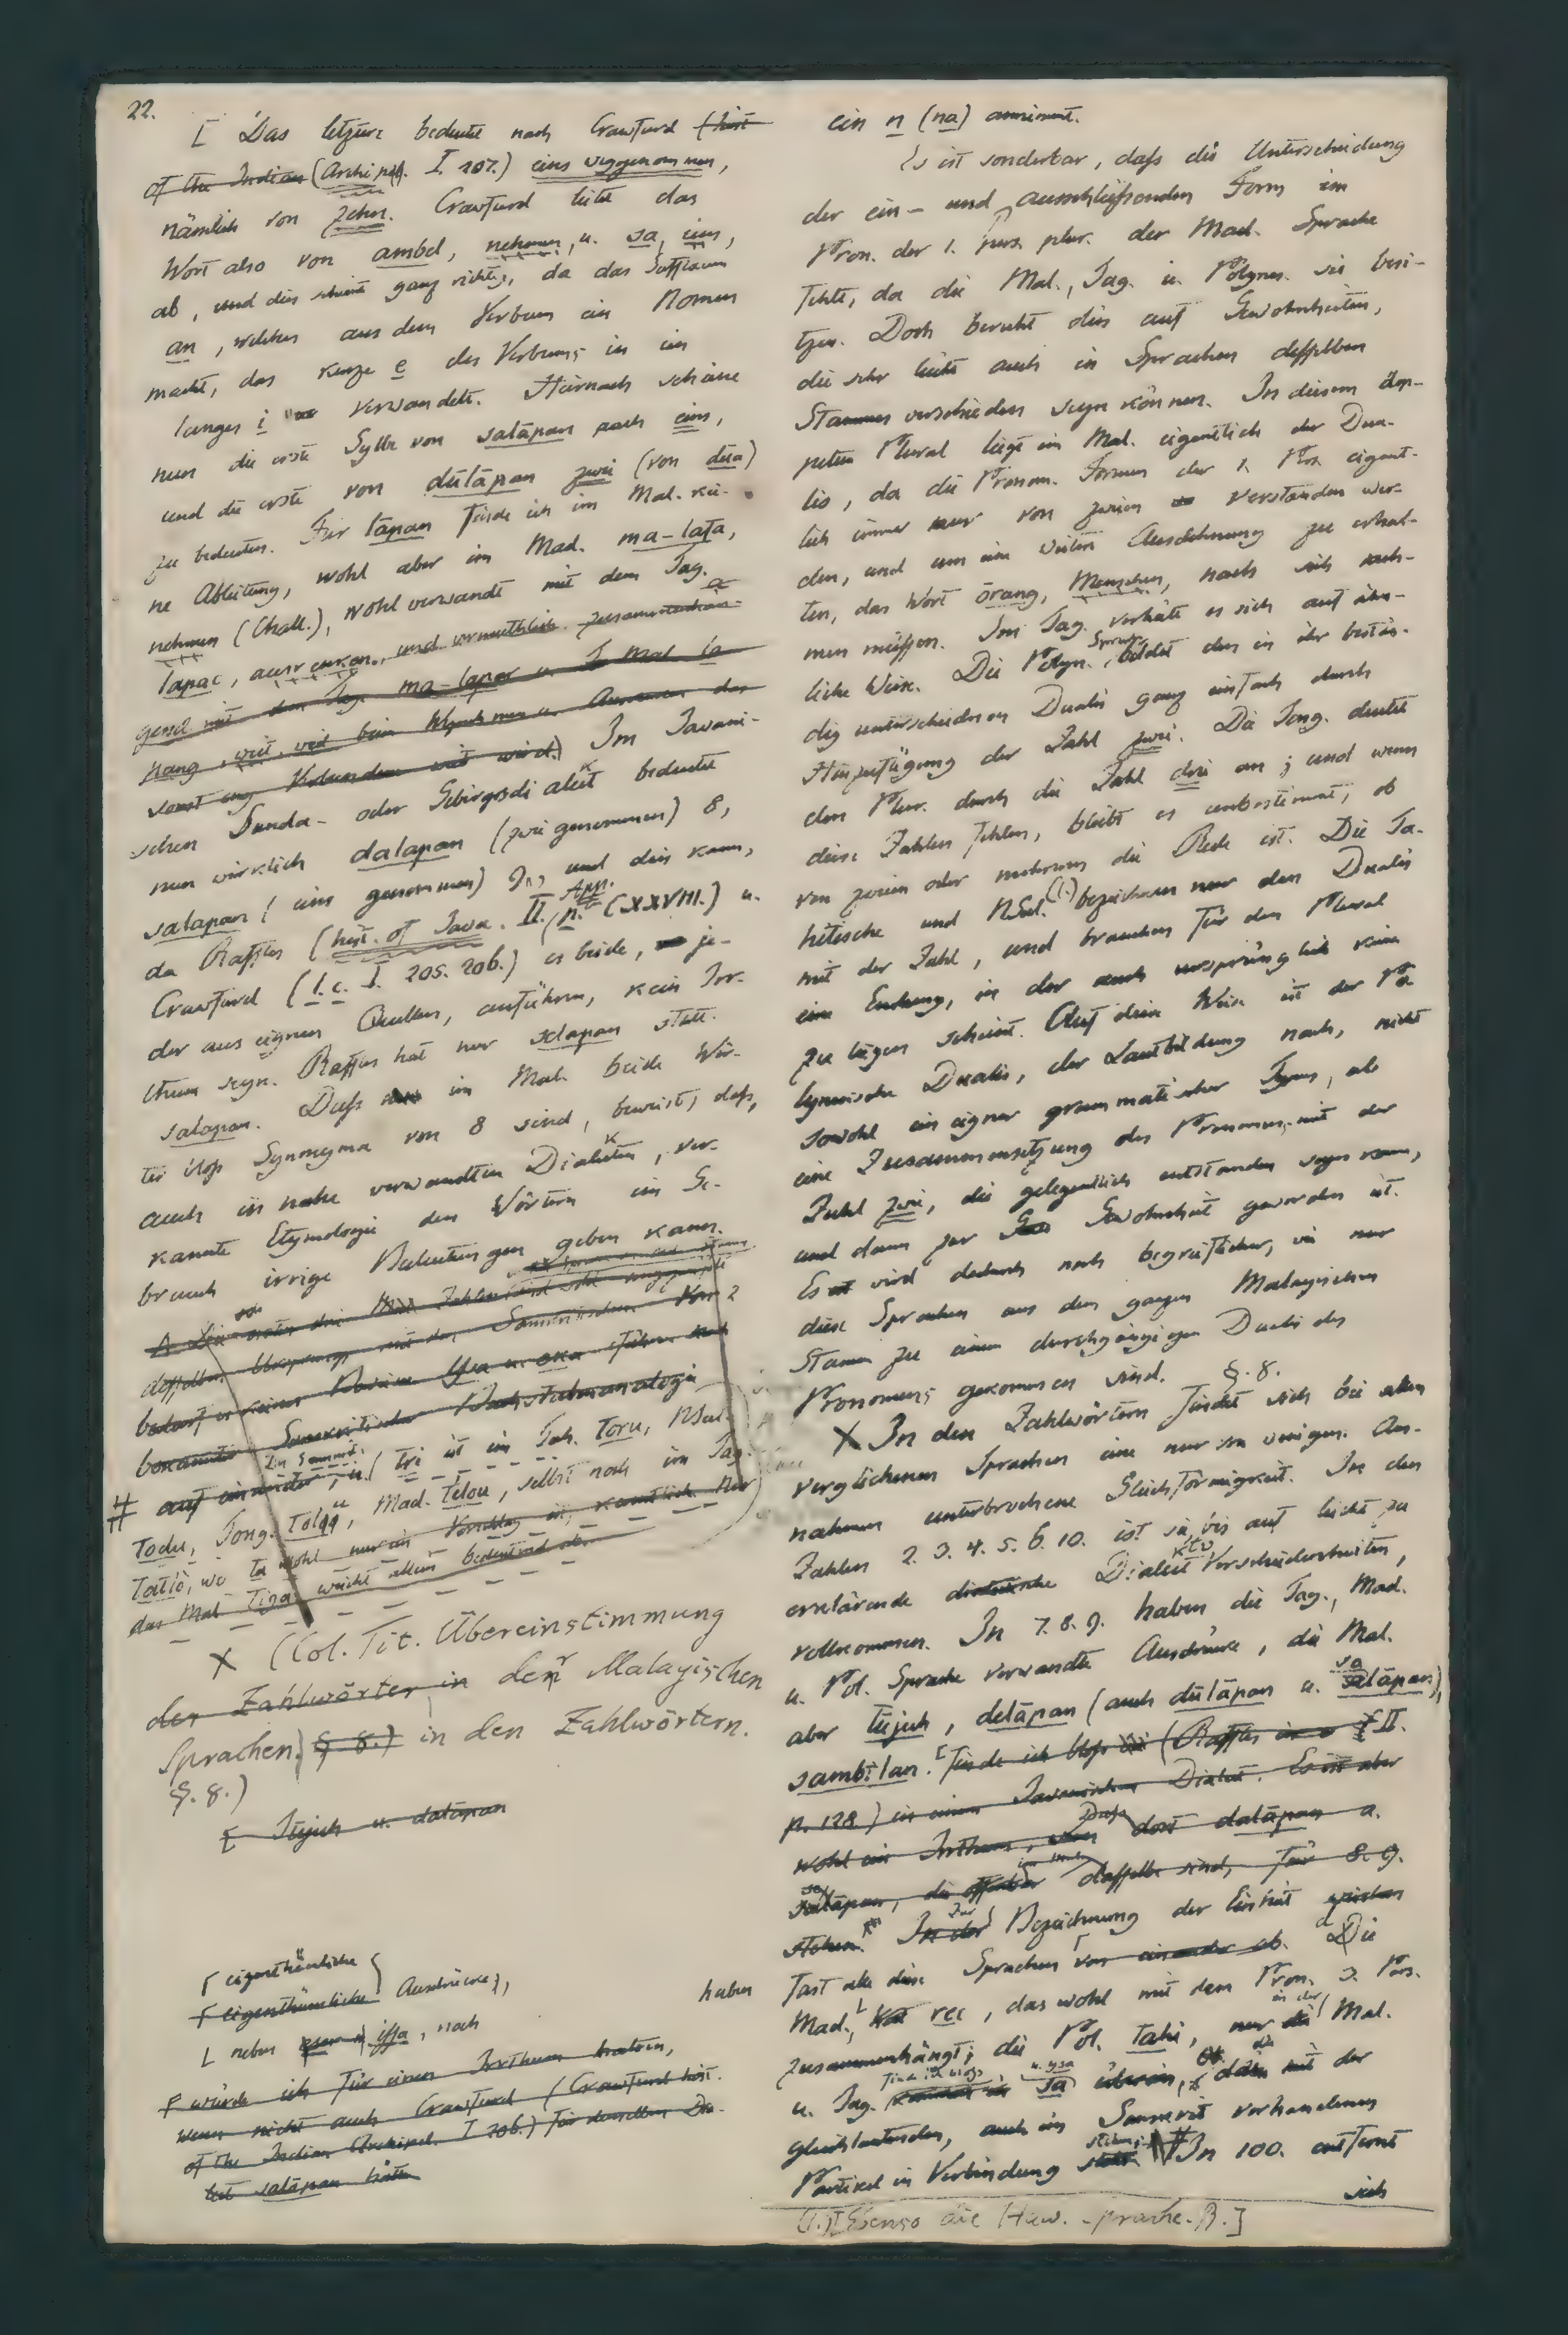 22.
[ Das letztere bedeutet nach Crawfurd (hist.
of the Indian (Archipel. I. 207.) eins weggenommen,
nämlich von zehn. Crawfurd leitet das
Wort also von ambel, nehmen, u. sa, eins,
ab, und dies scheint ganz richtig, da das Suffixum
an, welches aus dem Verbum ein Nomen
macht, das kurze e des Verbums in ein
langes i verwandelt. Hiernach schiene
nun die erste Sylbe von salāpan auch eins,
und die erste von dūlāpan zwei (von dūa)
zu bedeuten. Für lāpan finde ich im Mal. kei-
ne Ableitung, wohl aber im Mad. ma-lafa,
nehmen (Chall.), wohl verwandt mit dem Tag.
lapac, und vermuthlich
gend mit dem Tag. ma-lapar u. d. Mal. la
pang, weit, weil beim Wegnehmen u. der
sonst eng Verbundne weit wird.) Im Javani-
schen Sunda- oder Gebirgsdialekt bedeutet
nun wirklich dalapan (zwei genommen) 8,
salapan (eins genommen) 9, und dies kann,
da Raffles (hist. of Java. II. App. p. (XXVIII.) u.
Crawfurd (l. c. I. 205. 206.) es beide, je-
der aus eignen Quellen, anführen, kein Irr-
thum seyn. Raffles hat nur selapan statt
salapan. Dass im Mal. beide Wör-
ter bloss Synonyma von 8 sind, beweist, dass,
auch in nahe verwandten Dialekten, ver-
kannte Etymologie den Wörtern im Ge-
brauch irrige Bedeutungen geben kann.
drei Zahlen sind
desselben Ursprungs mit den Sanskritischen. Von 2
bedarf es keines Beweises
bekannter Sanskritischer Buchstabenanalogie
# auf einander, u. ( Im Sanskrit. tri ist im Tah. toru, NSeel.
todu, Tong. tolu, Mad. telou, selbst noch im Tag.
tatlo, wo ta wohl nur ein Vorschlag ist, kenntlich. Nur
das Mal. tiga weicht allein bedeutend ab.
X (Col. Tit. Übereinstimmung
der Zahlwörter in der Malayischen
Sprachen § 8.) in den Zahlwörtern.
§. 8.)
[ Tūjuh u. dalāpan
[ eigenthümliche
[ eigenthümliche Ausdrücke,
L neben issa, noch
[ würde ich für einen Irrthum halten,
wenn nicht auch Crawfurd (Crawfurd hist.
of the Indian Archipel. I 206.) für denselben Dia-
lekt salāpan hätte
ein n (na) annimmt.
Es ist sonderbar, dass die Unterscheidung
der ein- und ausschliessenden Form im
Pron. der 1. pers. plur. der Mad. Sprache
fehlt, da die Mal., Tag. u. Polynes. sie besi-
tzen. Doch beruht dies auf Gewohnheiten,
die sehr leicht auch in Sprachen desselben
Stammes verschieden seyn können. In diesem dop-
pelten Plural liegt im Mal. eigentlich der Dua-
lis, da die Pronom. Formen der 1. Pers. eigent-
lich immer nur von zweien verstanden wer-
den, und um eine weitere Ausdehnung zu erhal-
ten, das Wort ōrang, Menschen, nach sich neh-
men müssen. Im Tag. verhält es sich auf ähn-
liche Weise. Die Polyn. Sprache bildet den in ihr bestän-
dig unterschiedenen Dualis ganz einfach durch
Hinzufügung der Zahl zwei. Die Tong. deutet
den Plur. durch die Zahl drei an; und wenn
diese Zahlen fehlen, bleibt es unbestimmt, ob
von zweien oder mehreren die Rede ist. Die Ta-
hitische und NSeel. (1.) bezeichnen nur den Dualis
mit der Zahl, und brauchen für den Plural
eine Endung, in der auch ursprünglich keine
zu liegen scheint. Auf diese Weise ist der Po-
lynesische Dualis, der Lautbildung nach, nicht
sowohl ein eigner grammatischer Typus, als
eine Zusammensetzung des Pronomens mit der
Zahl zwei, die gelegentlich entstanden seyn kann,
und dann zur Gewohnheit geworden ist.
Es wird dadurch noch begreiflicher, wie nur
diese Sprachen aus dem ganzen Malayischen
Stamm zu einem durchgängigen Dualis des
Pronomens gekommen sind. §. 8.
X In den Zahlwörtern findet sich bei allen
verglichenen Sprachen eine nur von wenigen Aus-
nahmen unterbrochene Gleichförmigkeit. In den
Zahlen 2. 3. 4. 5. 6. 10. ist sie bis auf leicht zu
erklärende Dialekt Verschiedenheiten,
vollkommen. In 7. 8. 9. haben die Tag., Mad.
u. Pol. Sprache verwandte Ausdrücke, die Mal.
aber tūjuh, delāpan (auch dūlāpan u. salāpan),
sambīlan. [ finde ich bloss (Raffles II.
p. 128) in einem Javanischen Dialekt. Es ist aber
wohl ein Irrthum, dass dort dalāpan u.
salāpan, die offenbar dasselbe sind, für 8. 9.
stehen. In der Zur Bezeichnung der Einheit
haben fast alle diese Sprachen von einander ab. Die
Mad., hat rec, das wohl mit dem Pron. 3. Pers.
zusammenhängt; die Pol. tahi, nur in der Mal.
u. Tag. finde ich bloss sa u. ysa überein, die mit der
gleichlautenden, auch im Sanskrit vorhandenen
Partikel in Verbindung stehen. # In 100. entfernt
sich
(1.) [Ebenso die Haw. Sprache. B.]